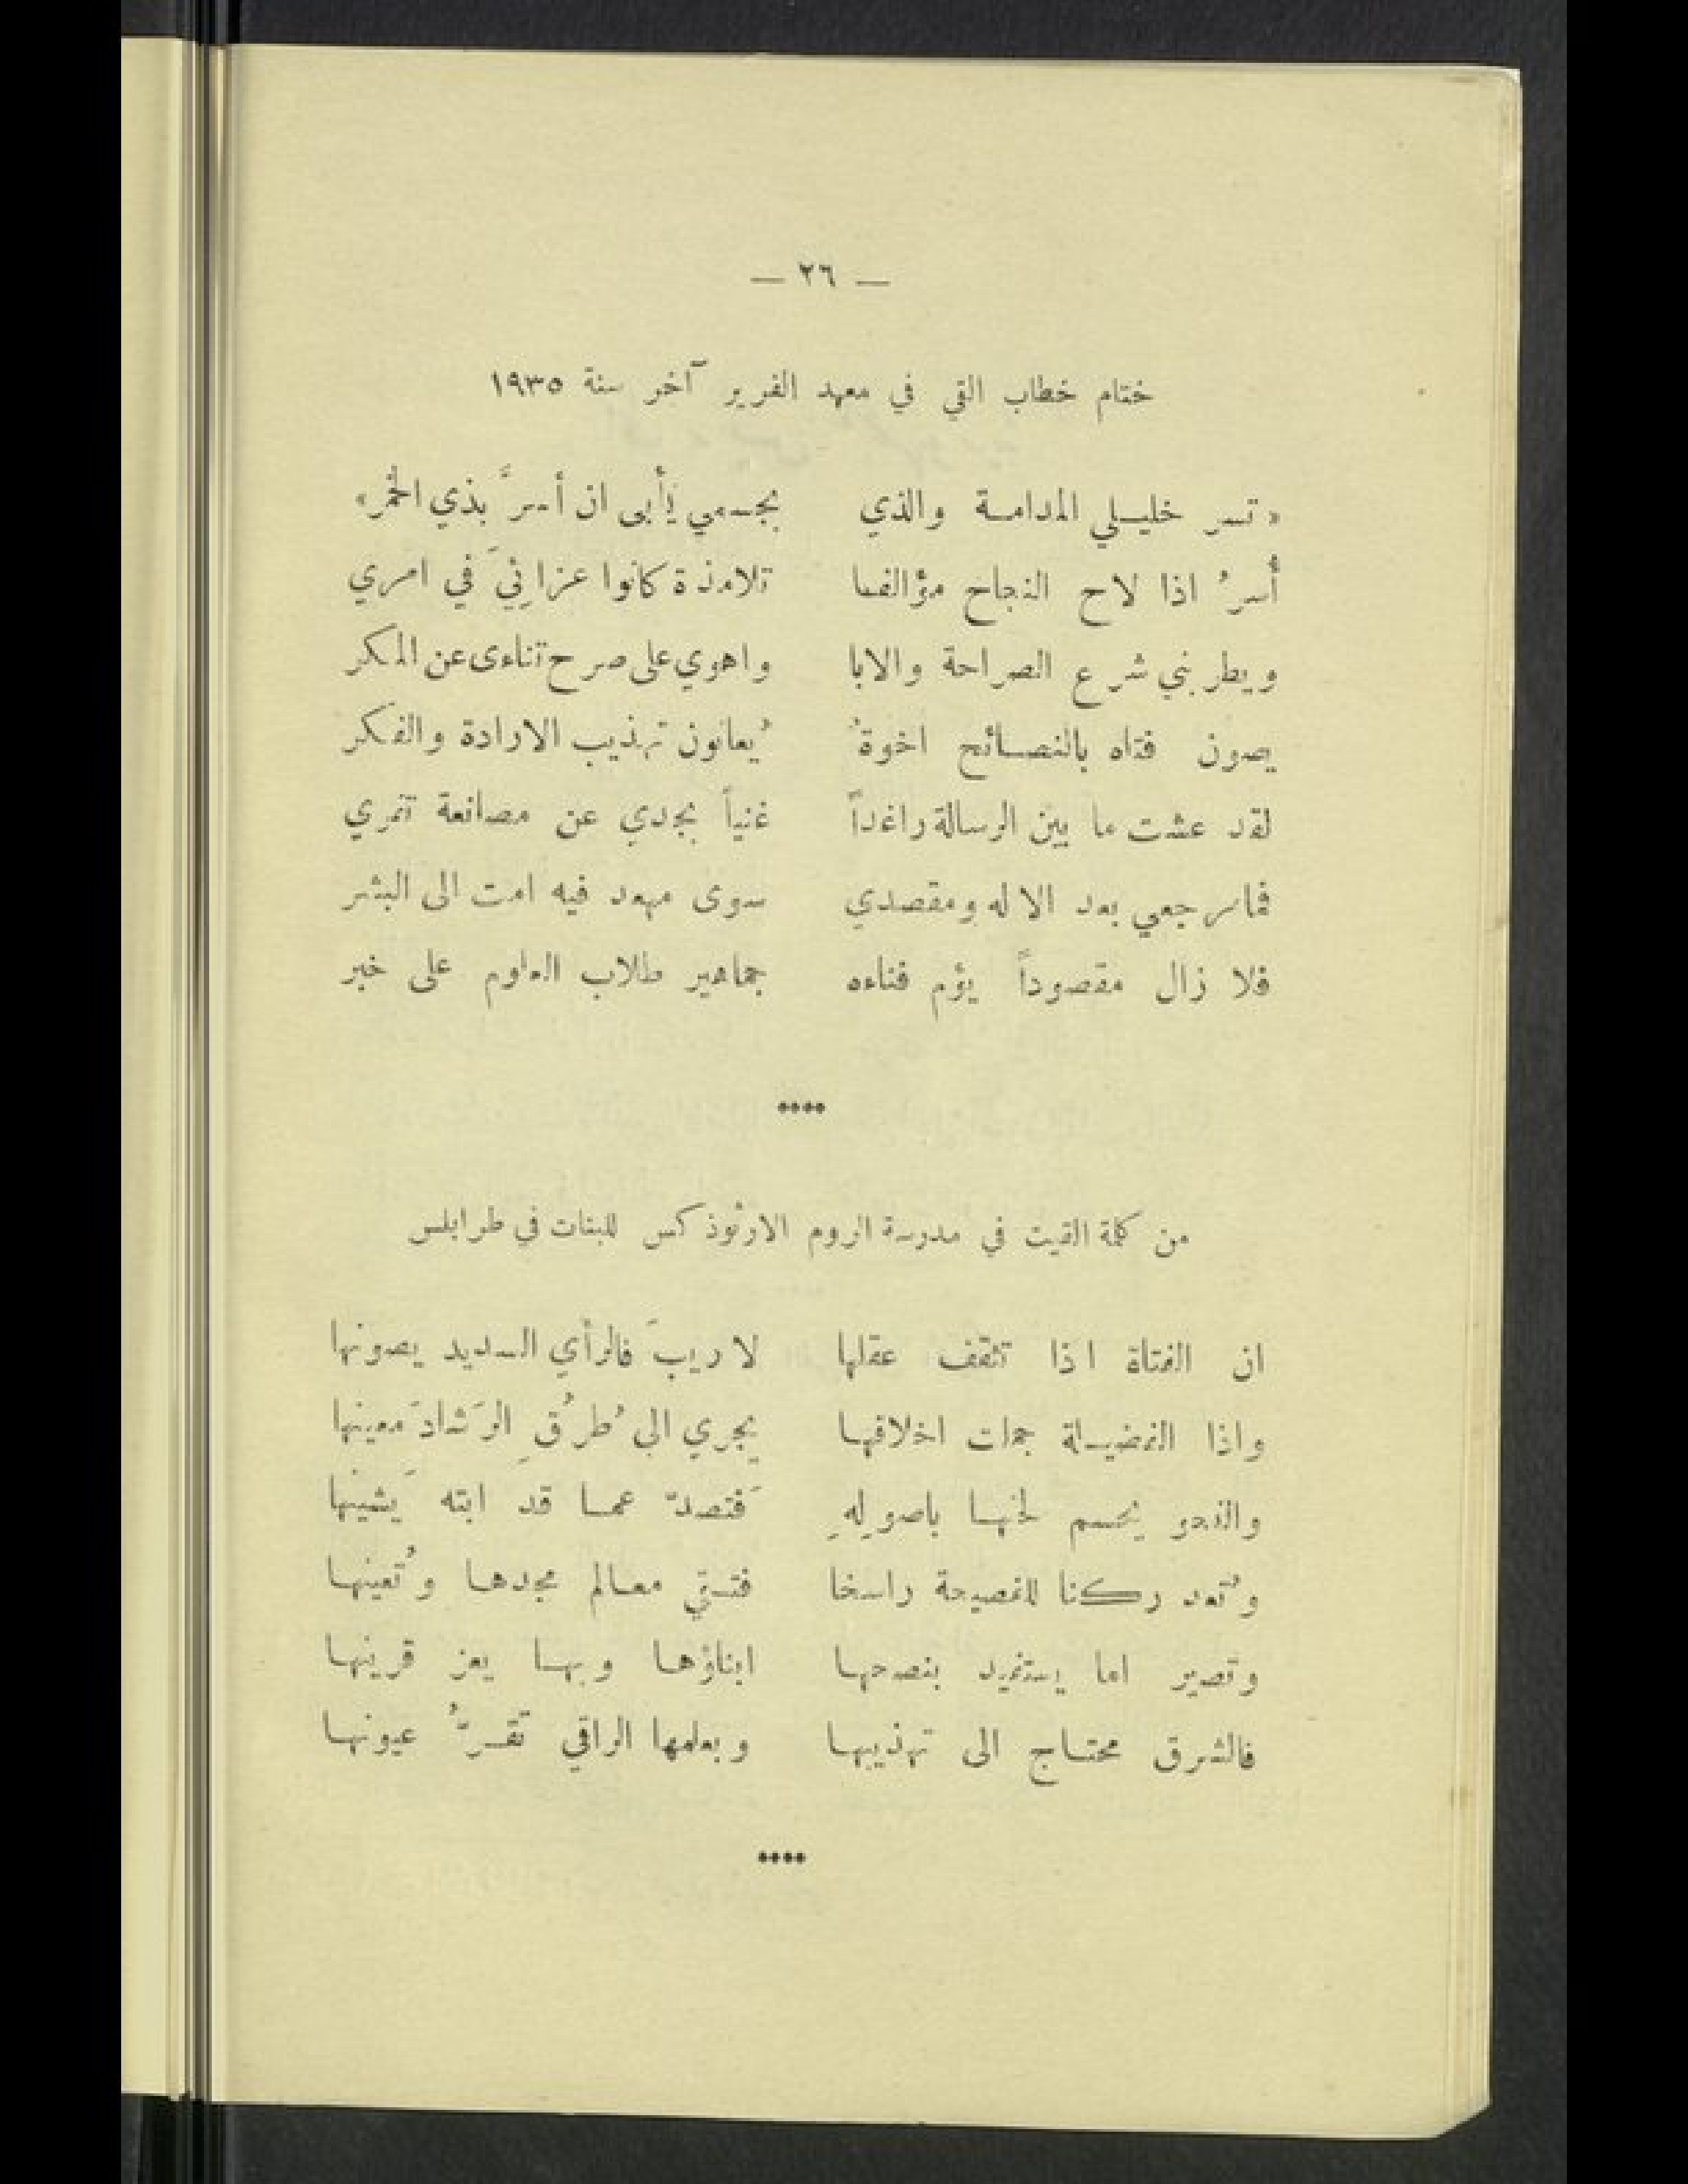 — ٢٦ —
ختام خطاب القي في معهد الفرير آخر سنة ١٩٣٥
« تسر خليلي المدامة والذي بجسمي يَأبى ان أُسرَّ بذي الخمر »
أُسرُ اذا لاح النجاح مؤالفا تلامذة كانوا عزائِيَ في امري
ويطربني شرع الصراحة والابا واهوي على صرح تناءى عن المكر
يصون فتاه بالنصائح اخوةُ يُعانون تهذيب الارادة والفكر
لقد عشت ما بين الرسالة راغداً غنياً بجدي عن مصانعة تمري
فما مرجعي بعد الاله ومقصدي سوى مهعد فيه امت الى البشر
فلا زال مقصوداً يؤم فناءه جماهير طلاب العلوم على خبر
****
من كلمة القيت في مدرسة الروم الارثوذكس للبنات في طرابلس
ان الفتاة اذا تثقف عقلها لا ريبَ فالرأي السديد يصونها
واذا الفضيلة جملت اخلاقها يجري الى طُرُقِ الرَشادَ معينها
والنحو يحسم لحنها باصولِهِ فَتصدّ عما قد ابته يَشينها
وتُعد ركنا للفصيحة راسخا فتقي معالم مجدها وتُعينها
وتصير اما يستفيد بنصحها ابناؤها وبها يعز قرينها
فالشرق محتاج الى تهذيبها وبعلمها الراقي تقرُّ عيونها
****